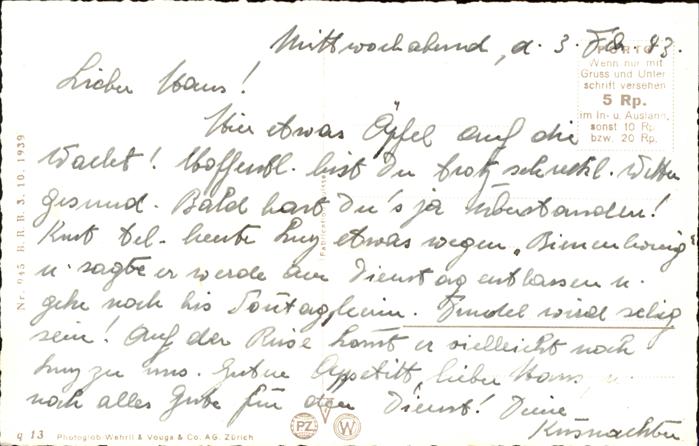 Mittwochabend, d. 3. Feb. 43.
PORTO
Wenn nur mit
Gruss und Unter
schrift versehen
5 Rp.
im In- u. Ausland,
sonst 10 Rp.
bzw. 20 Rp.
Lieber Hans!
Hier etwas Äpfel auf die
Wacht! Hoffentl. bist Du trotz schreckl. Wetter
gesund. Bald hast Du's ja überstanden!
Kurt tel. heute Luz etwas wegen „Bienenhonig
u. sagte er werde am Dienstag entlassen u.
gehe noch bis Sonntag heim. wird selig
sein! Auf der Reise kommt er vielleicht noch
kurz zu uns. Guten Appetitt, lieber Hans, u.
noch alles Gute für den Dienst! Deine
Küsnachter
Nr. 945 B.R.B. 3. 10. 1939
q 13 Photoglob-Wehrli & Vouga & Co. AG. Zürich
PZ W